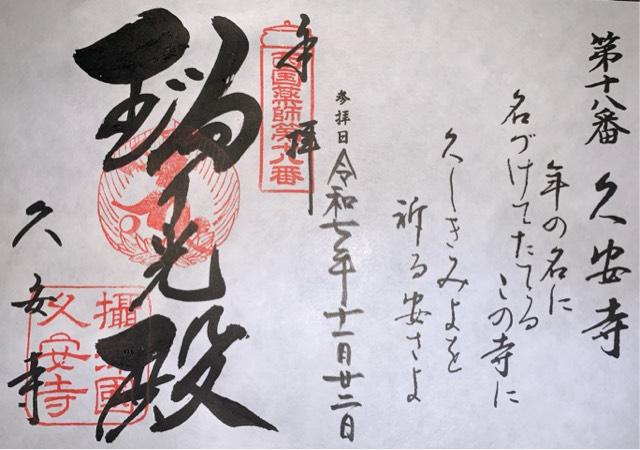 第十八番 久安寺
年の名に
名づけてたてる この寺に
久しきみよを
祈る安さよ
参拝日 令和七年十一月廿二日
奉拝
西国薬師第十八番
瑠イ光殿
攝津國
久安寺
久安寺